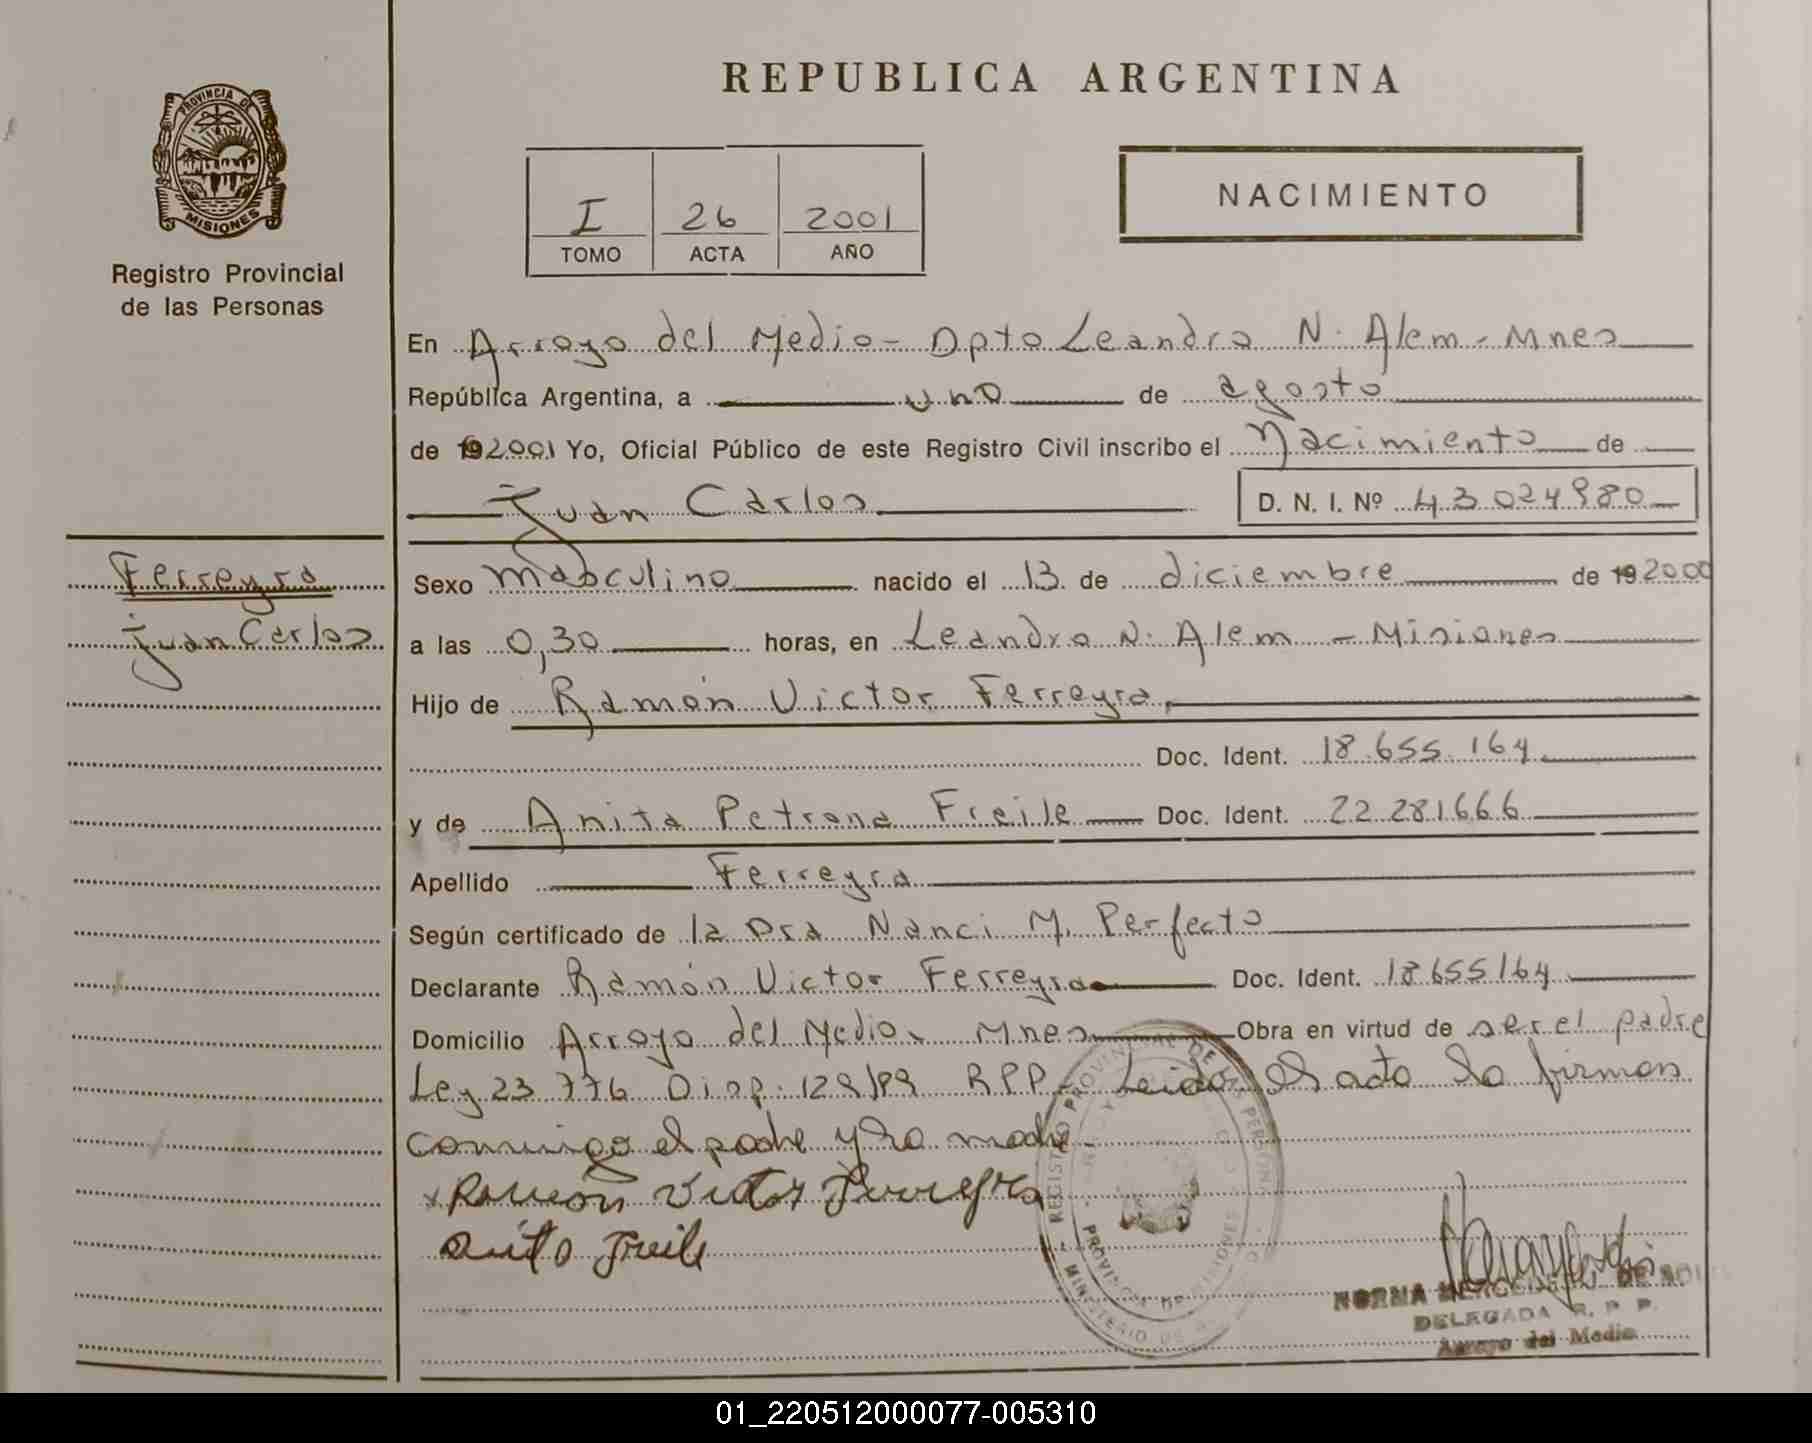 PROVINCIA DE
MISIONES
Registro Provincial
de las Personas
REPUBLICA ARGENTINA
I 26 2001
TOMO ACTA AÑO
NACIMIENTO
En Arroyo del Medio - Dpto Leandro N. Alem - Mnes
República Argentina, a uno de agosto
de 19 2001 Yo, Oficial Público de este Registro Civil inscribo el Nacimiento de
Juan Carlos D. N. I. Nº 43024980
Ferreyra
Juan Carlos
Sexo masculino nacido el 13 de diciembre de 19 2000
a las 0,30 horas, en Leandro N. Alem - Misiones
Hijo de Ramón Victor Ferreyra
Doc. Ident. 18.655.164
y de Anita Petrona Freile Doc. Ident. 22.281666
Apellido Ferreyra
Según certificado de la Dra Nanci M. Perfecto
Declarante Ramón Victor Ferreyra Doc. Ident. 18655164
Domicilio Arroyo del Medio - Mnes Obra en virtud de ser el padre
Ley 23776 Disp. 129/99 R.P.P. - Leido el acta la firman
conmigo el padre y la madre -
x Ramon Victor Ferreyra
Anita Freile
REGISTRO PROVINCIAL DE LAS PERSONAS
MINISTERIO DE
PROVINCIA DE MISIONES
NORMA
DELEGADA R. P. P.
Arroyo del Medio
01_220512000077-005310